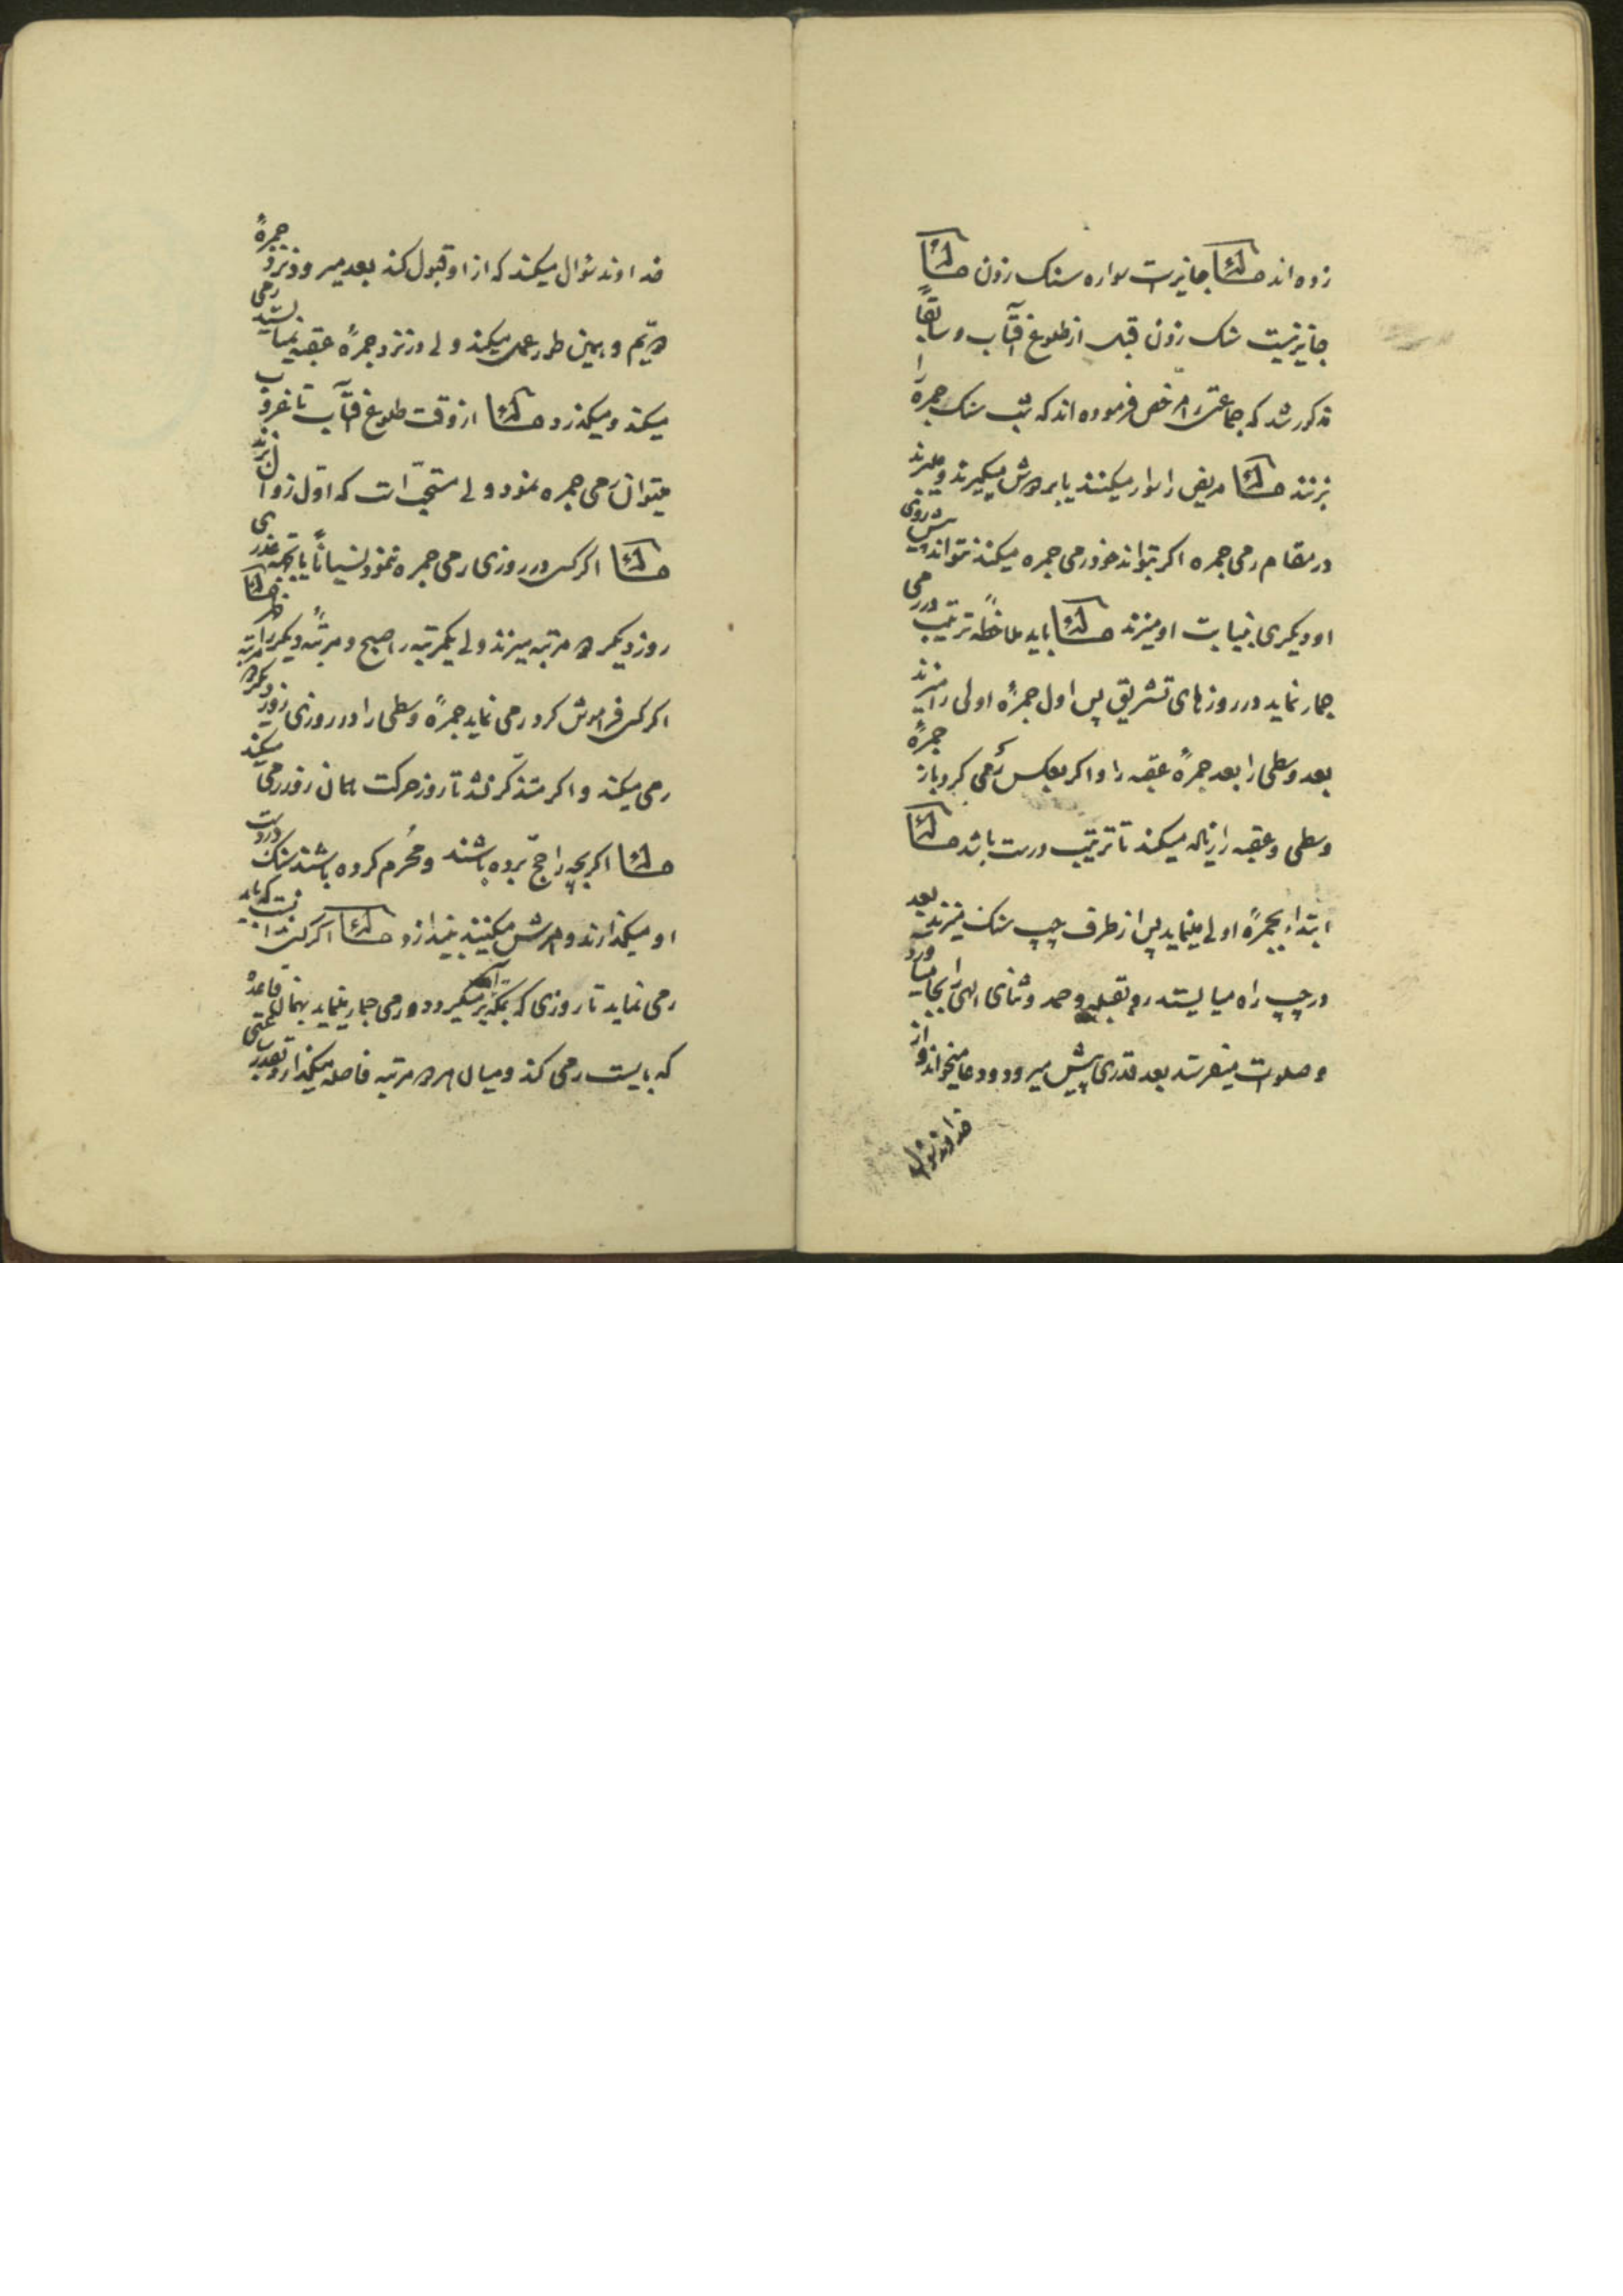 زده‌اند مسئله جایز است سواره سنک زدن مسئله
جایز نیست سنک زدن قبل از طلوع آفتاب و سابقاً
مذکور شد که جماعتی را مرخص فرموده‌اند که شب سنک جمره را
بزنند مسئله مریض را سوار میکنند یا بدوش میکیرند و میبرند
در مقام رمی جمره اکر بتواند خود رمی جمره میکند نتواند پیش روی
او دیکری بنیابت او میزند مسئله باید ملاحظهٔ ترتیب در رمی
جمار نماید در روزهای تشریق پس اول جمرهٔ اولی را میزند
بعد وسطی را بعد جمرهٔ عقبه را و اکر بعکس رمی کرد باز جمرهٔ
وسطی و عقبه را از نو میکند تا ترتیب درست باشد مسئله
ابتداء بجمرهٔ اولی مینماید پس از طرف چپ سنک میزند بعد
در چپ راه میایستد رو بقبله و حمد و ثنای الهی را بجا میاورد
و صلوات میفرستد بعد قدری پیش میرود و دعا میخواند و از
خداوند سؤال
خداوند سؤال میکند که از او قبول کند بعد میرود نزد جمرهٔ
دویّم و بهمین طور عمل میکند ولی در نزد جمرهٔ عقبه نمیایستد رمی
میکند و میکذرد مسئله از وقت طلوع آفتاب تا غروب
میتوان رمی جمره نمود ولی مستحبّ است که اوّل زوال بزند
مسئله اکر کسی در روزی رمی جمره ننمود نسیاناً یا بجهة عذری
روز دیکر دو مرتبه میزند ولی یکمرتبه را صبح و مرتبهٔ دیکر را ظهر مسئله
اکر کسی فراموش کرد رمی نماید جمرهٔ وسطی را در روزی روز دیکر دو مرتبه
رمی میکند و اکر متذکّر نشد تا روز حرکت همان روز رمی میکند
مسئله اکر بچه را حجّ برده باشند و مُحرم کرده باشند سنک در دست
او میکذارند و امرش میکنند بیندازد مسئله اکر کسی
رمی نماید تا روزی که بمکه بر میکردد و رمی جمار ننماید بهمان قاعدهٔ
که بایست رمی کند و میان هر دو مرتبه فاصله میکذارد بقدر ساعتی